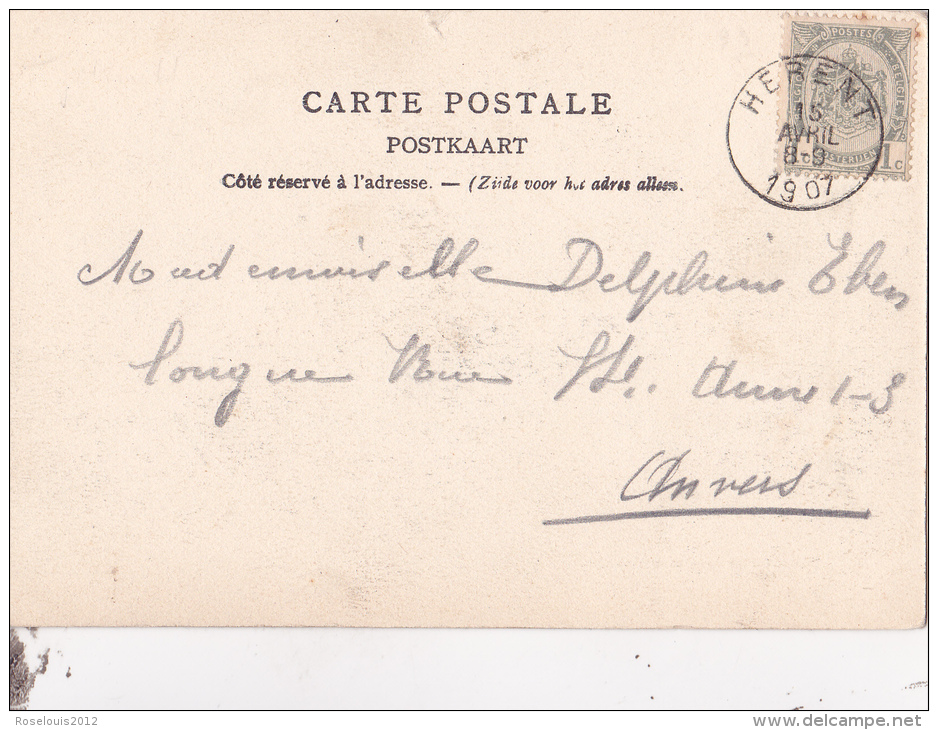 CARTE POSTALE
POSTKAART
Côté réservé à l'adresse. — (Zijde voor het adres alleen.
POSTES
1c
HERENT
15
AVRIL
8-9
1907
Mademoiselle Delphine Eben
longue Rue Ste. Anne 1-3
Anvers
Roselouis2012
www.delcampe.net